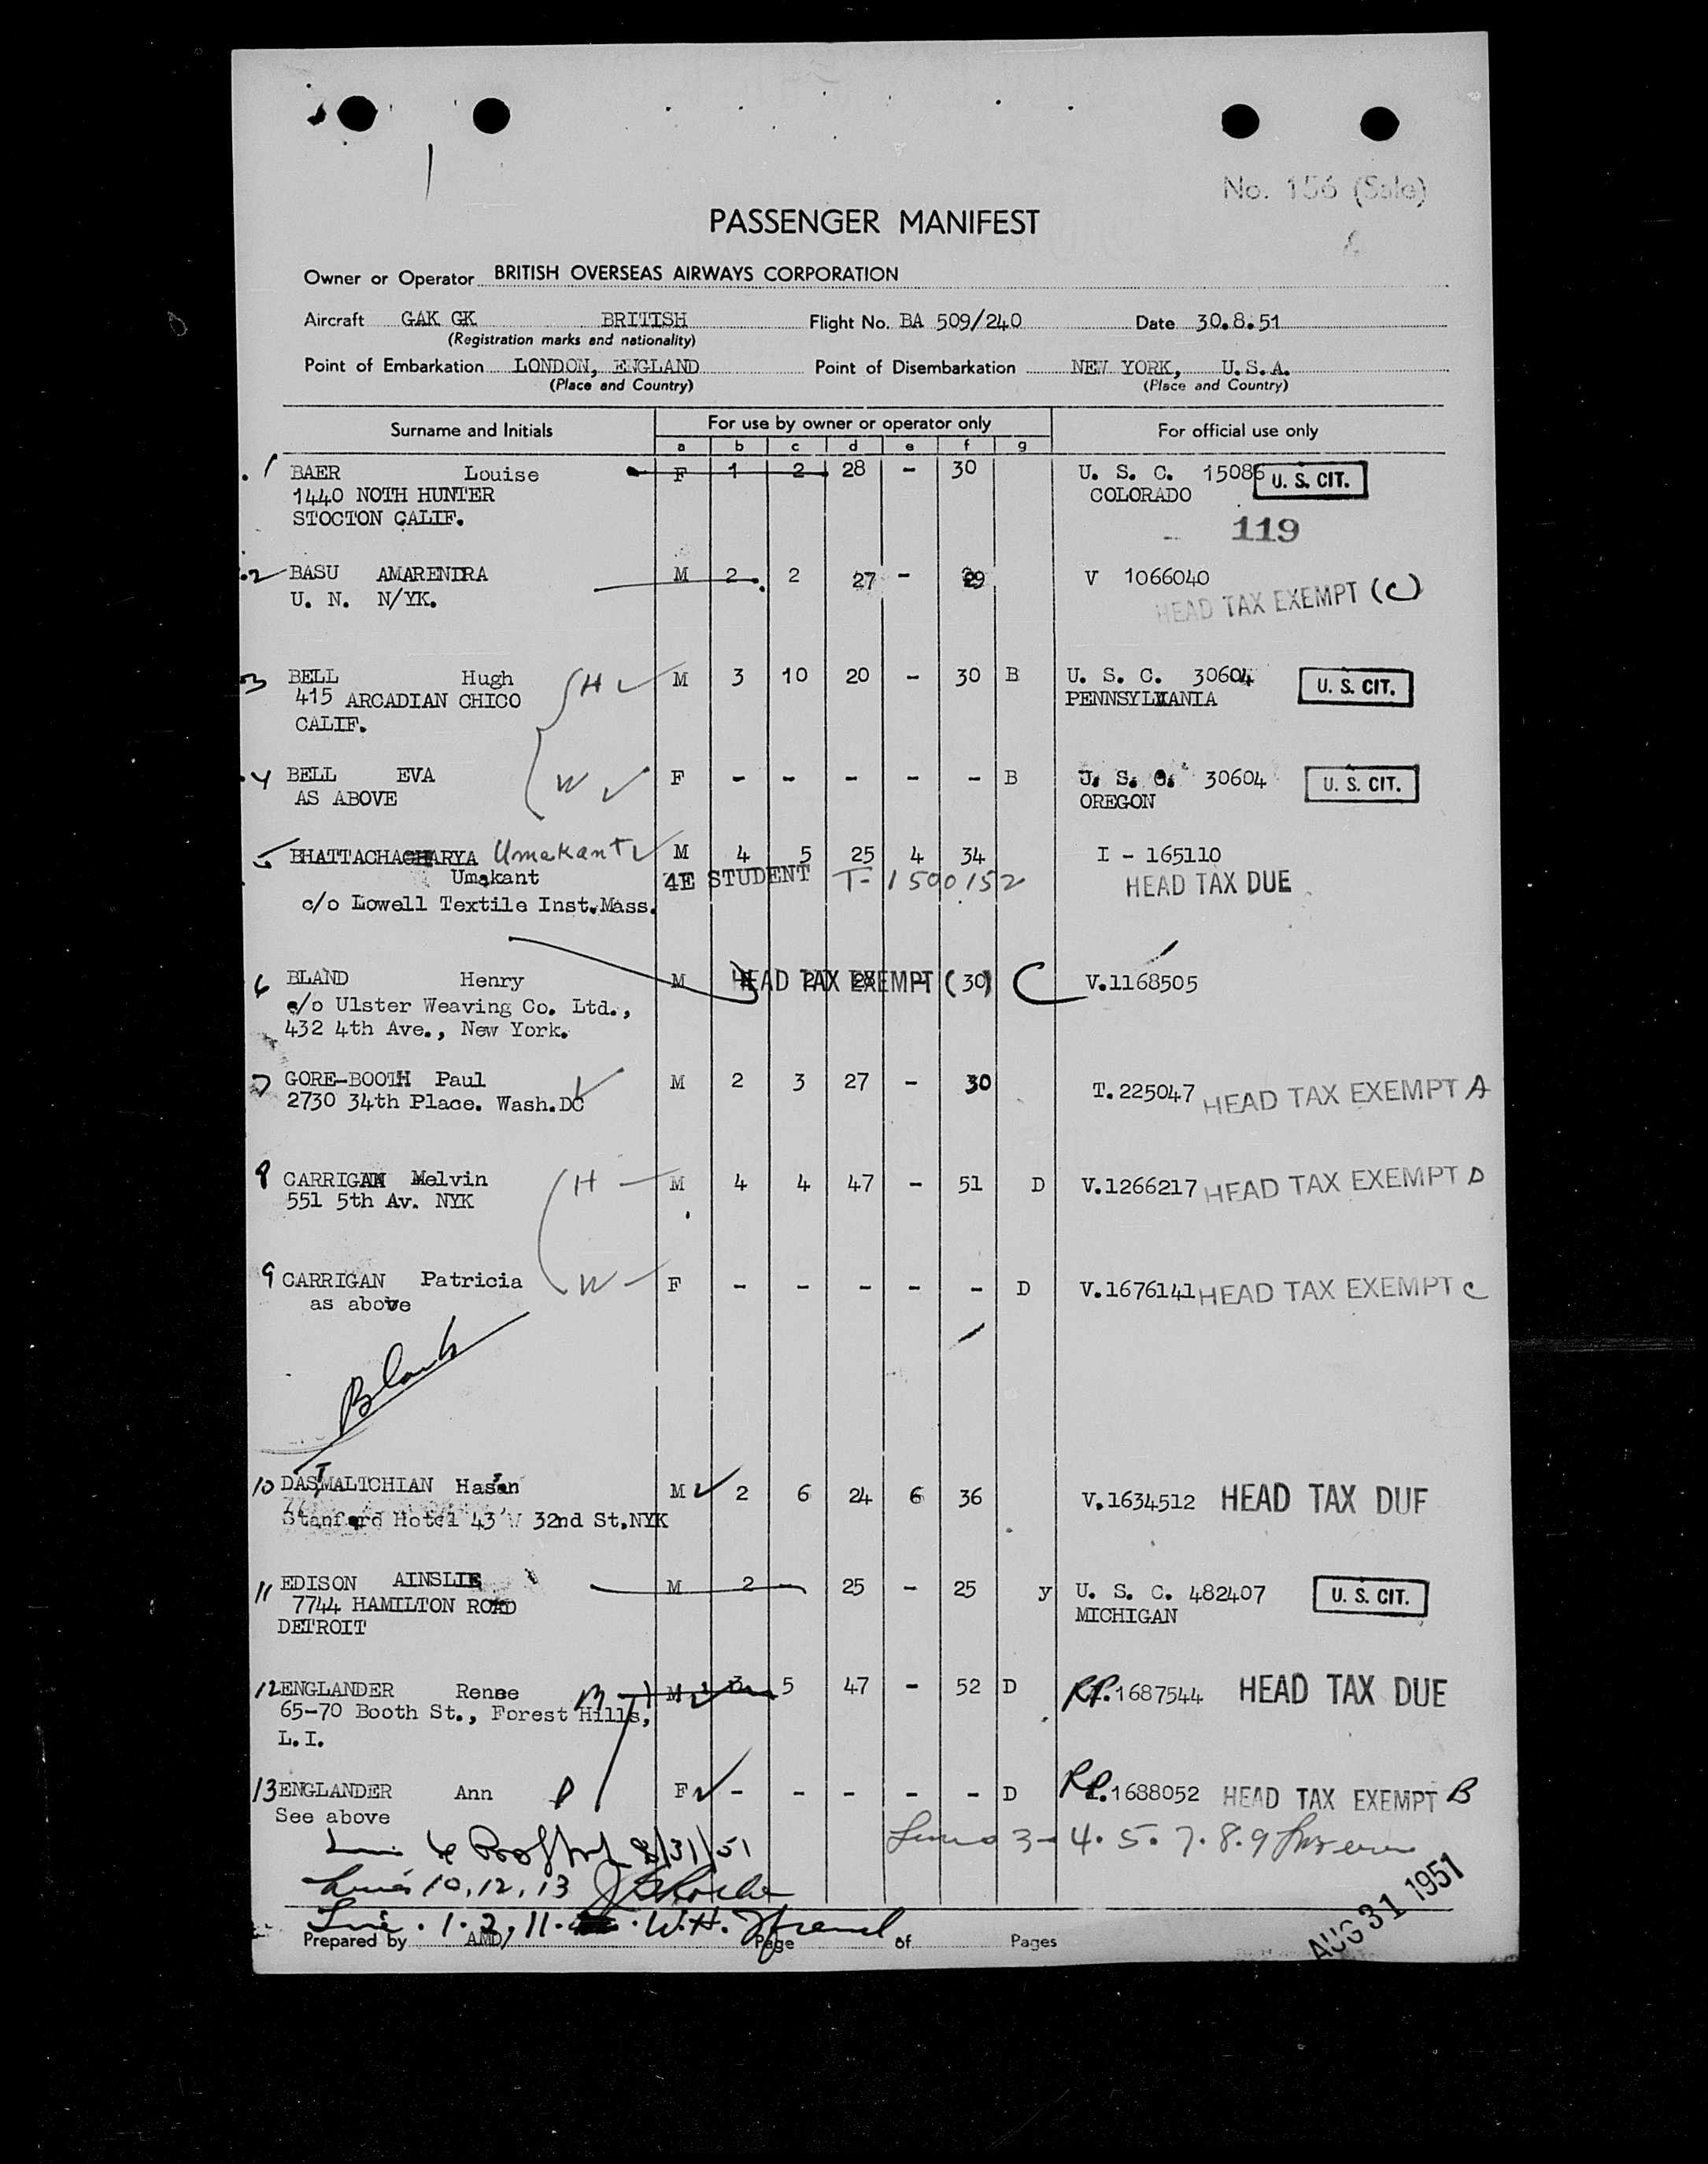 No. 156 (Sale)
PASSENGER MANIFEST
Owner or Operator BRITISH OVERSEAS AIRWAYS CORPORATION
Aircraft GAK GK BRITISH Flight No. BA 509/240 Date 30.8.51
(Registration marks and nationality)
Point of Embarkation LONDON, ENGLAND Point of Disembarkation NEW YORK, U.S.A.
(Place and Country) (Place and Country)
Surname and Initials For use by owner or operator only For official use only
a b c d e f g
1 BAER Louise F 1 2 28 - 30 U. S. C. 15086 U. S. CIT.
1440 NOTH HUNTER COLORADO
STOCTON CALIF.
119
2 BASU AMARENDRA M 2 2 27 - 29 V 1066040
U. N. N/YK. HEAD TAX EXEMPT (C)
3 BELL Hugh H M 3 10 20 - 30 B U. S. C. 30604 U. S. CIT.
415 ARCADIAN CHICO PENNSYLVANIA
CALIF.
4 BELL EVA W F - - - - - B U. S. C. 30604 U. S. CIT.
AS ABOVE OREGON
5 BHATTACHACHARYA Umakant M 4 5 25 4 34 I - 165110
Umakant 4E STUDENT T-1500152 HEAD TAX DUE
c/o Lowell Textile Inst.Mass.
6 BLAND Henry M 2 28 - 30 HEAD TAX EXEMPT ( ) C V.1168505
c/o Ulster Weaving Co. Ltd.,
432 4th Ave., New York.
7 GORE-BOOTH Paul M 2 3 27 - 30 T.225047 HEAD TAX EXEMPT A
2730 34th Place. Wash.DC
8 CARRIGAN Melvin H M 4 4 47 - 51 D V.1266217 HEAD TAX EXEMPT D
551 5th Av. NYK
9 CARRIGAN Patricia W F - - - - - D V.1676141 HEAD TAX EXEMPT C
as above
Blank
10 DASTMALTCHIAN Hasan M 2 6 24 6 36 V.1634512 HEAD TAX DUE
Stanford Hotel 43 W 32nd St.NYK
11 EDISON AINSLIE M 2 - 25 - 25 y U. S. C. 482407 U. S. CIT.
7744 HAMILTON ROAD MICHIGAN
DETROIT
12 ENGLANDER Renee M M 3 5 47 - 52 D RP.1687544 HEAD TAX DUE
65-70 Booth St., Forest Hills,
L.I.
13 ENGLANDER Ann D F - - - - - D RP.1688052 HEAD TAX EXEMPT B
See above
Line 6 8/31/51 Lines 3-4.5.7.8.9
Lines 10,12,13
Line . 1.2,11. W.H.
Prepared by AMD/ Page of Pages
AUG 31 1951